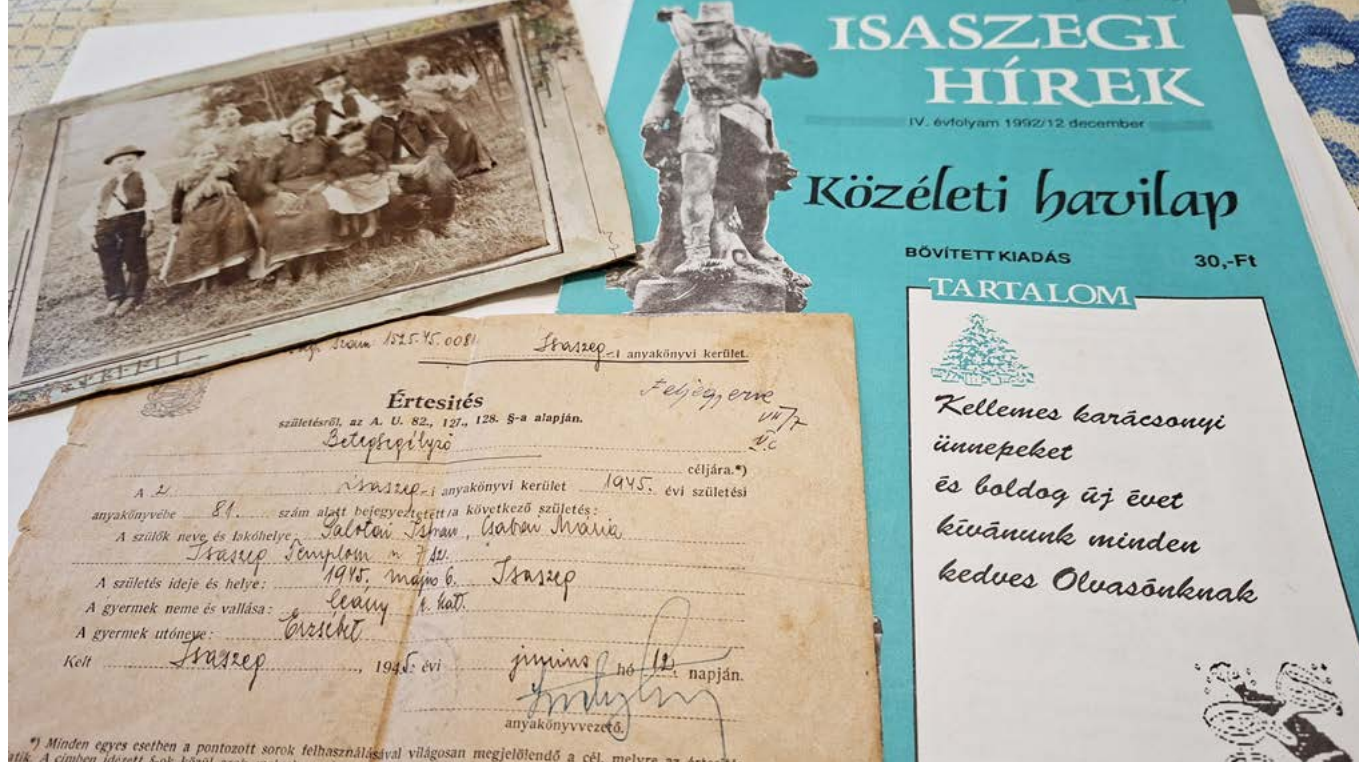 ISASZEGI
HÍREK
IV. évfolyam 1992/12 december
Közéleti havilap
BŐVÍTETT KIADÁS
30,-Ft
TARTALOM
Kellemes karácsonyi
ünnepeket
és boldog új évet
kívánunk minden
kedves Olvasónknak
szám 1525.45.0081. Isaszeg-i anyakönyvi kerület.
Értesités
Feljegyezve
születésről, az A. U. 82., 127., 128. §-a alapján.
Betegsegélyző
céljára.*)
A 2. Isaszeg-i anyakönyvi kerület 1945. évi születési
anyakönyvébe 81. szám alatt bejegyeztetett a következő születés:
A szülők neve és lakóhelye: Salótai István, Csabai Mária
Isaszeg Templom u 7 sz.
A születés ideje és helye: 1945. május 6. Isaszeg
A gyermek neme és vallása: leány r. kat.
A gyermek utóneve: Erzsébet
Kelt Isaszeg, 1945. évi június hó 12. napján.
anyakönyvvezető.
*) Minden egyes esetben a pontozott sorok felhasználásával világosan megjelölendő a cél, melyre az
A címben idézett §-ok közül